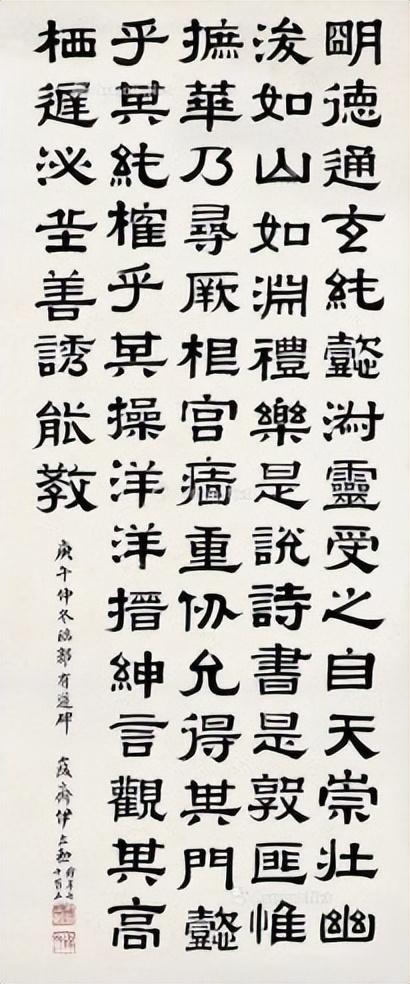 明德通玄純懿淑靈受之自天崇壮幽
浚如山如淵禮樂是說詩書是敦匪惟
摭華乃尋厥根宫牆重仞允得其門懿
乎其純確乎其操洋洋搢紳言觀其高
栖遲泌丘善誘能教
庚午仲冬臨郭有道碑 峻齋伊立勳 時年七十有五